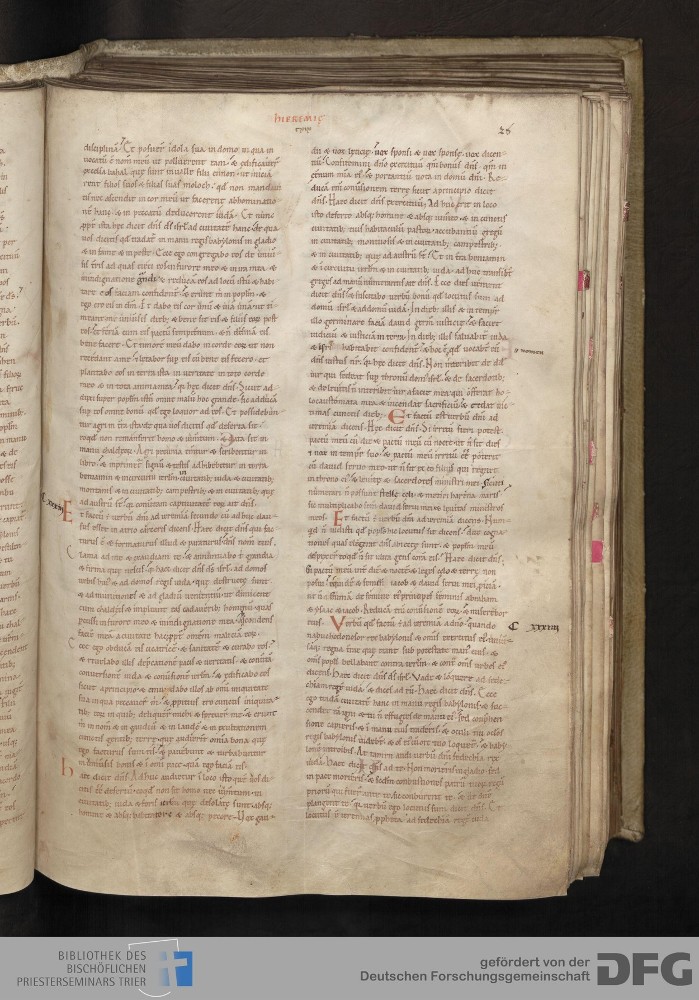 HIEREMIE
28
disciplinā. Et posuer idola sua in domo in qua in
uocatū ē nomē meū ut polluerent eam. & edificauer
excelsa baal que sunt in ualle filii ennon. ut initia
rent filios suos & filias suas moloch. qd non mandaui
eis nec ascendit in cor meū ut facerent abhominatio
nē hanc. & in peccatū deducerent iuda. Et nunc
ppt ista hec dicit dns ds isrl ad ciuitatē hanc de qua
uos dicitis qd tradat in manu regis babylonis in gladio
& in fame & in peste. Ecce ego congregabo eos de uniuer
sis terris ad quas eieci eos in furore meo & in ira mea. &
in indignatione grandi. & reducā eos ad locū istū & habi
tare eos faciam confidenter. & erunt m in popłm. &
ego ero eis in dm. Et dabo eis cor unū & uiā unā ut ti
meant me uniuersis dieb; & bene sit eis & filiis eoR post
eos. & feriā eis pactū sempiternum. & n desinā eis
bene facere. Et timorē meū dabo in corde eoR ut non
recedant a me. & letabor sup eis cū bene eis fecero. et
plantabo eos in terra ista in ueritate in toto corde
meo & in tota anima mea. qa hec dicit dns. Sicut ad
duxi super popłm istū omne malū hoc grande. sic adducā
sup eos omne bonū qd ego loquor ad eos. Et possidebun
tur agri in tra ista de qua uos dicitis qd deserta sit
eo qd non remanserit homo & iumentum. & data sit in
manu chaldeoR. Agri pecunia ementur & scribentur in
libro. & imprimet signū & testis adhibebitur in terra
beniamin & in circuitu ierłm in ciuitatib; iuda & in ciuitatib;
montanis & in ciuitatib; campestrib; & in ciuitatib; que
ad austrū st. qa conuertam captiuitatē eoR ait dns.
Et factū ē uerbū dni ad ieremiā secundo cū adhuc clau
sus esset in atrio carceris dicens. Haec dicit dns qui fac
turus ē & formaturus illud & paraturus dns nom eius.
Clama ad me & exaudiam te. & annuntiabo t grandia
& firma que nescis. qa haec dicit dns ds isrl ad domos
urbis huius & ad domos regis iuda. que destructe sunt
& ad munitiones & ad gladiū uenientiū ut dimicent
cum chaldeis & impleant eas cadauerib; hominū quos
percussi in furore meo & in indignatione mea. abscondens
faciē meā a ciuitate hac ppt omem malitiā eoR.
Ecce ego obducā eis cicatricē & sanitatē & curabo eos.
& reuelabo illis deprecationē pacis & ueritatis. & conuertā
conuersionē iuda & conuersionē ierłm. & edificabo eos
sicut a principio. & emundabo illos ab omi iniquitate
sua in qua peccauer m. & ppitius ero cunctis iniquita
tib; eoR in quib; deliquer mihi & spreuer me. & erunt
m in nom & in gaudiū & in laudē & in exultationem
cunctis gentib; terre. que audierint omnia bona que
ego facturus sum eis. & pauebunt & turbabuntur
in uniuersis bonis & in omi pace quā ego faciā eis.
Haec dicit dns. Adhuc audietur in loco isto quē uos di
citis ēē desertū eo qd non sit homo nec iumentum. in
ciuitatib; iuda & foris ierłm que desolate sunt absq;
homine & absq; habitatore & absq; pecore. Vox gau
dii & uox leticie. uox sponsi & uox sponse. uox dicen
tiū. Confitemini dno exercituū qm bonus dns. qm in
eternum mia ei. & portantiū uota in domū dni. Re
ducā eni conuersionem terre sicut a principio dicit
dns. Haec dicit dns exercituū. Adhuc erit in loco
isto deserto absq; homine & absq; iumento & in cunctis
ciuitatib; eius habitaculū pastoR accubantiū gregū
in ciuitatib; montuosis & in ciuitatib; campestrib;
& in ciuitatib; que ad austrū st. & in tra beniamin
& in circuitu ierłm & in ciuitatib; iuda. adhuc transibt
greges ad manū numerantis ait dns. Ecce dies ueniunt
dicit dns & suscitabo uerbū bonū qd locutus sum ad
domū isrl & ad domū iuda. In dieb; illis & in tempr
illo germinare faciā dauid germ iusticie. & faciet
iudiciū & iusticiā in terra. In dieb; illis saluabit iuda
& isrl habitabit confidenter. & hoc ē qd uocabt eū
dns iustus nr. qa hec dicit dns. Non interibit de dd
uir qui sedeat sup thronū dom isrl. & de sacerdotib;
& de leuitis n interibit uir a facie mea qui offerat ho
locaustomata mea. & incendat sacrificiū & cedat uic
timas cunctis dieb; Et factū est uerbū dni ad
ieremiā dicens. Hec dicit dns. Si irritū fieri potest
pactū meū cū die & pactū meū cū nocte. ut n sit dies
& nox in tempre suo. & pactū meū irritū ēē poterit
cū dauid seruo meo. ut n sit ex eo filius qui regnet
in throno ei. & leuite & sacerdotes ministri mei. Sicuti
numerari n possunt stelle celi. & metiri harena maris.
sic multiplicabo sem dauid serui mei & leuitas ministros
meos. Et factū ē uerbū dni ad ieremiā dicens. Num
qd n uidisti qd popłs hic locutus sit dicens. Due cogna
tiones quas elegerat dns abiecte sunt. & popłm meū
despexer eo qd n sit ultra gens corā eis. Haec dicit dns.
Si pactū meū int diē & noctē & leges celo & terre non
posui. equidē & semen iacob & dauid serui mei piciā.
ut n assumā de semine ei principes seminis abraham
& ysaac & iacob. Reducā eni conuersionē eoR & miserebor
eis. Verbū qd factū ē ad ieremiā a dno quando
nabuchodonosor rex babylonis & omis exercitus ei uniuer
saq; regna tre que erant sub potestate man eius. &
oms popłi bellabant contra ierłm & cont oms urbes ei
dicens. Haec dicit dns ds isrl. Vade & loquere ad sede
chiam regē iuda. & dices ad eū. Haec dicit dns. Ecce
ego tradā ciuitatē hanc in manu regis babylonis & suc
cendet eā igni. & tu n effugies de manu ei. sed comphen
sione capieris & in manu eius traderis. & oculi tui oclos
regis babylonis uidebt. & os ei cū ore tuo loquet. & baby
lonē introibis. At tamen audi uerbū dni sedechia rex
iuda. Haec dicit dns ad te. Non morieris in gladio. sed
in pace morieris. & scdm combustiones patrū tuoR regū
priorū qui fuer ante te. sic conburent te. & ue dne
plangent te. qa uerbū ego locutus sum dicit dns. Et
locutus ē ieremias ppheta ad sedechiā regē iuda
C xxxiii
C xxxiiii
BIBLIOTHEK DES
BISCHÖFLICHEN
PRIESTERSEMINARS TRIER
gefördert von der
Deutschen Forschungsgemeinschaft
DFG